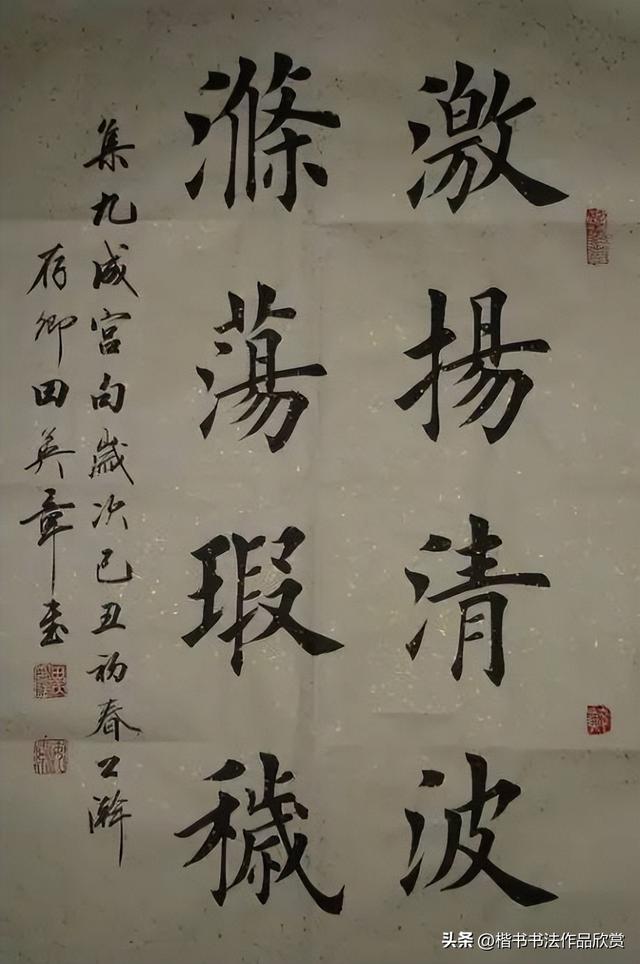 激揚清波
滌蕩瑕穢
集九成宮句歲次己丑初春之澣
存卿田英章書
头条 @楷书书法作品欣赏